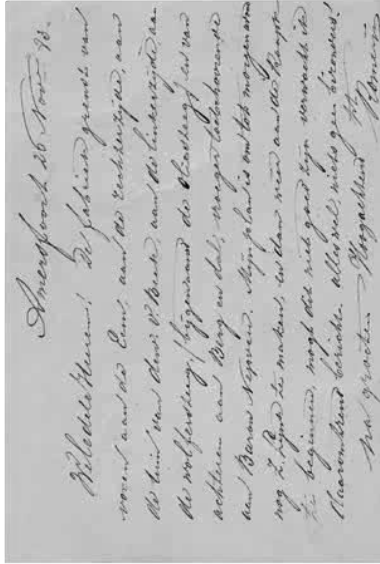 Amersfoort 26 Nov. 93.
WelEdele Heeren! De fabriek grenst van
voren aan de Eem, aan de rechterzijde, aan
de tuin van den v. Beek, aan de linkerzijde, aan
de Wolfersteeg / bijgenaamd de steeg van
achteren aan Berg en dal, vroeger toebehoorende
aan Baron Nijvelt. Mijn plan is om tot morgen avond
nog te maken, en dan aan de
te beginnen, mocht dit niet goed zijn verwacht ik
daaromtrent bericht. alles wel, niets geen bizonders!
na groeten Hoogachtend
Romein